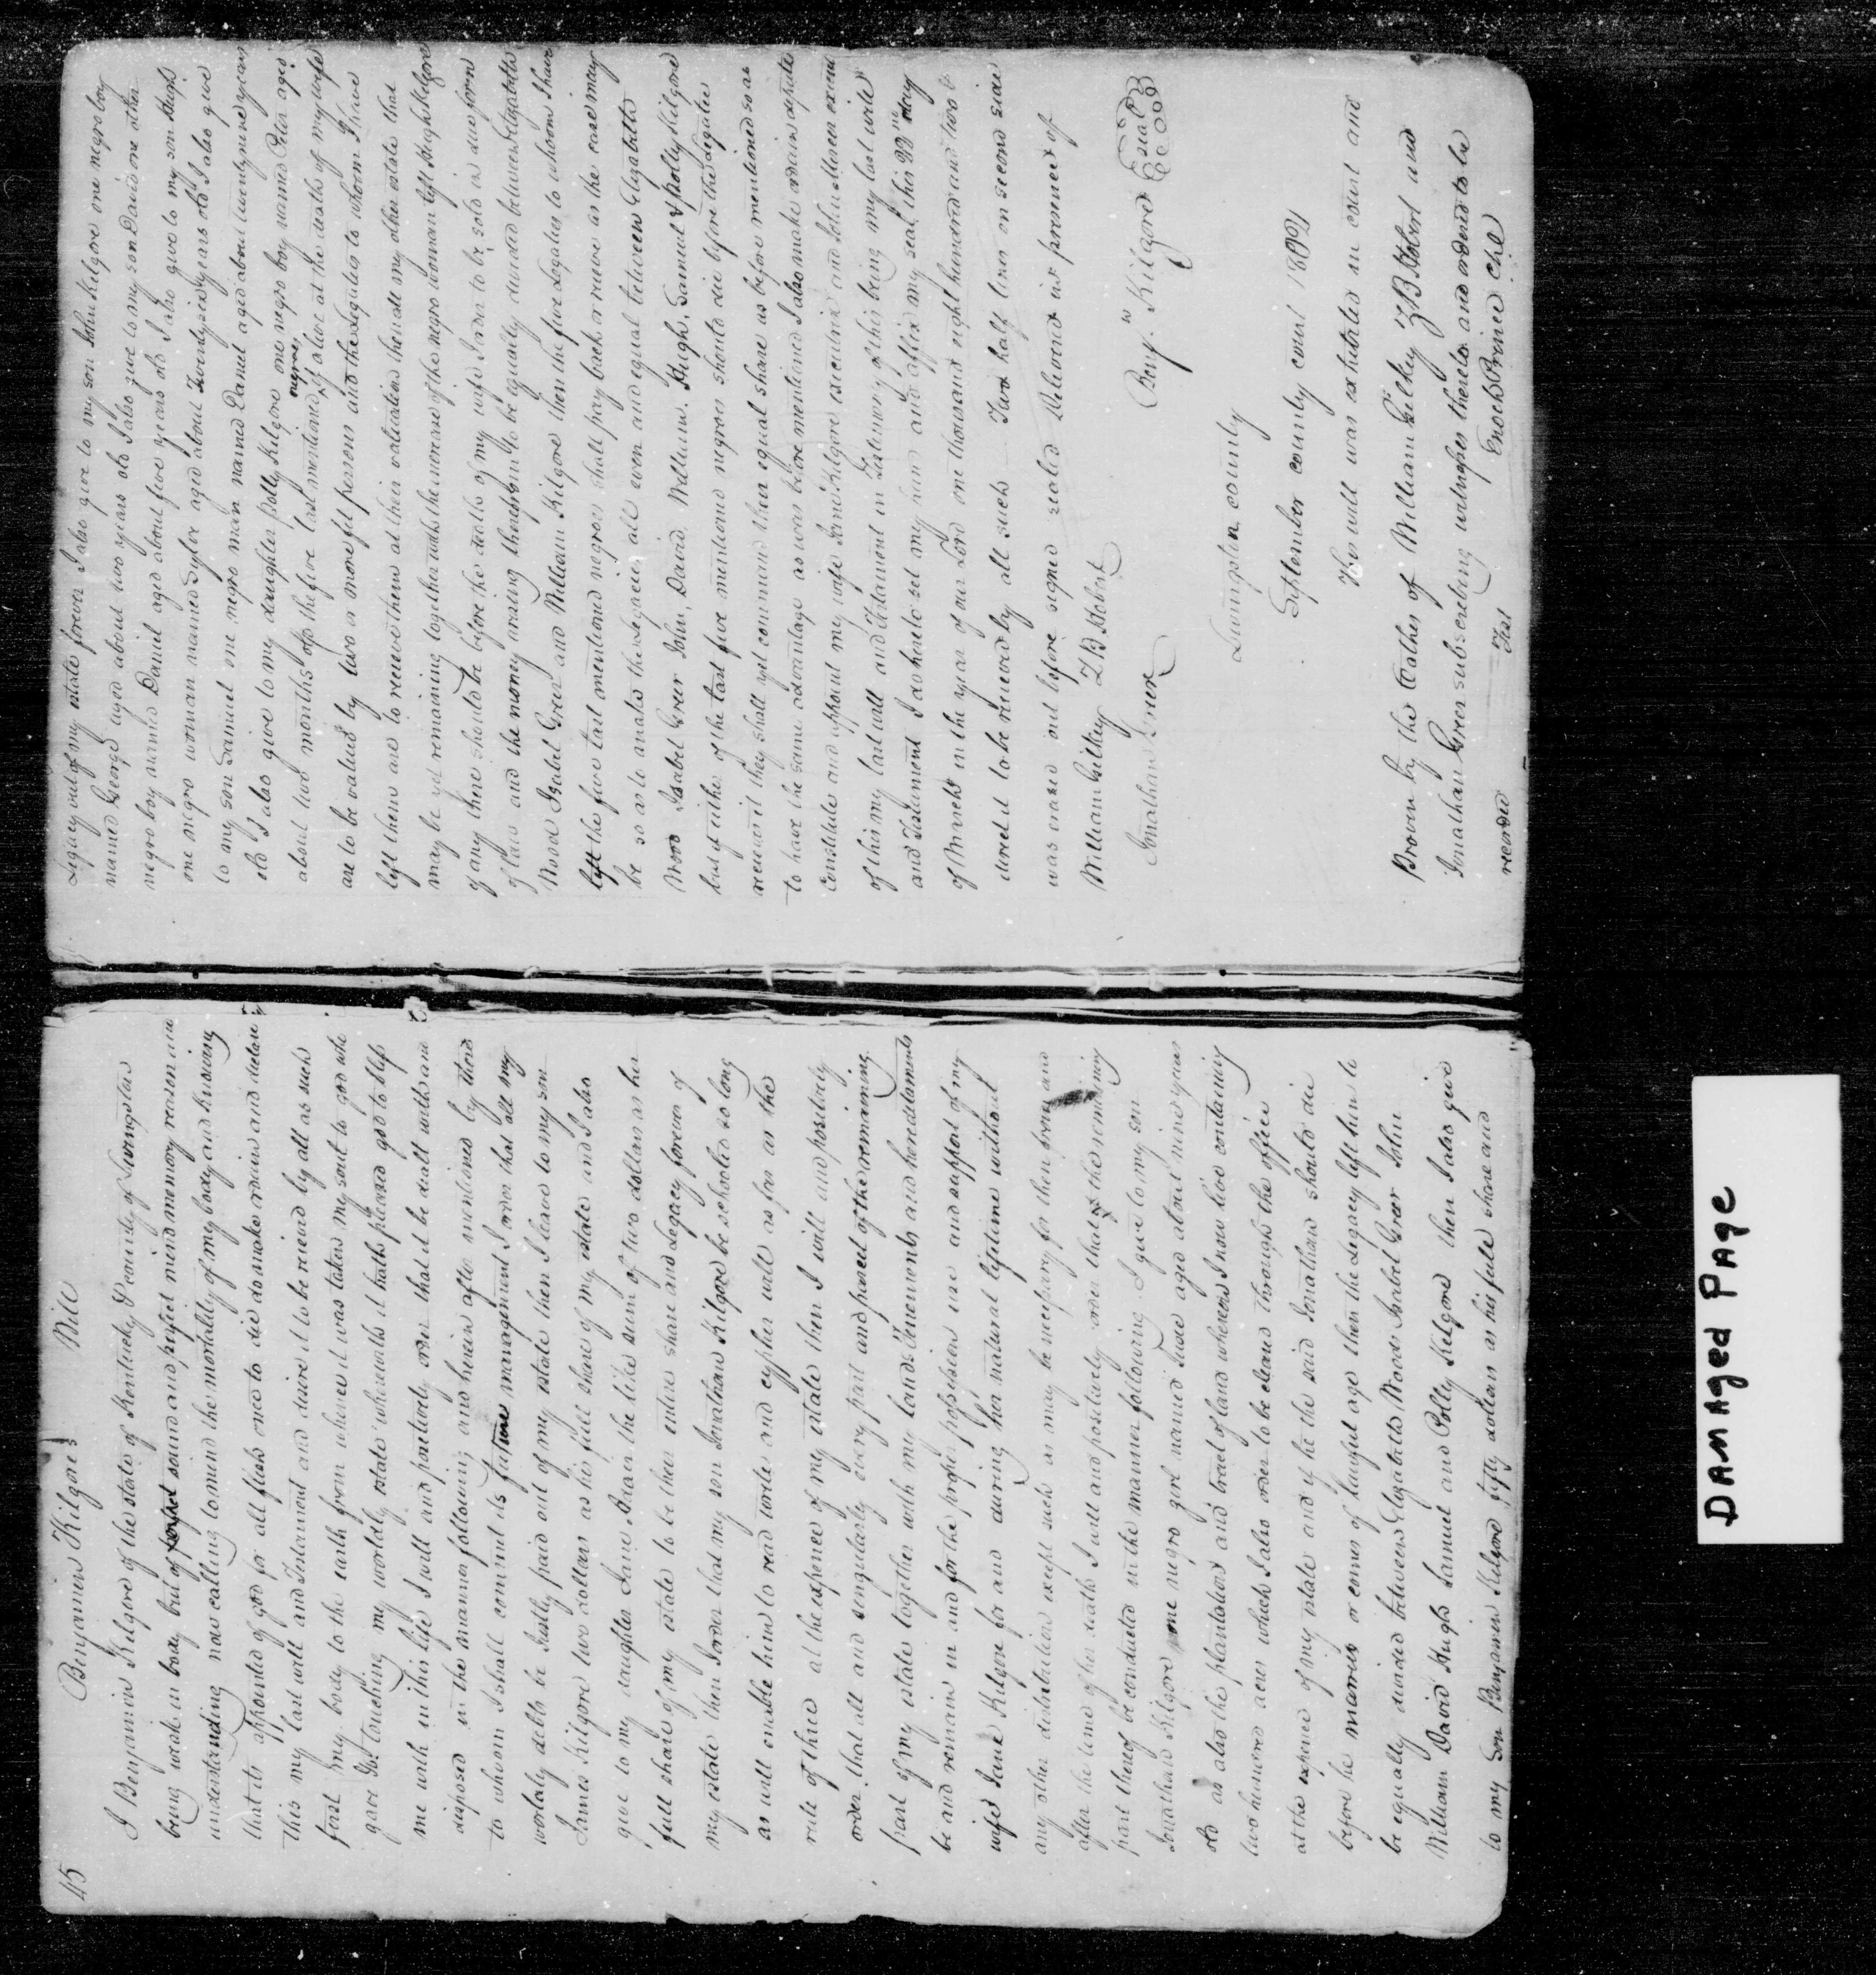 45 Benjamin Kilgores Will
I Benjamin Kilgore of the state of Kentucky & County of Livingston
being weak in body but of perfect sound and perfect mind memory reason and
understanding now calling to mind the mortality of my body and knowing
that its appointed of god for all flesh once to die do make ordain and declare
this my last will and Testament and desire it to be received by all as such
first my body to the earth from whence it was taken my soul to god who
gave It touching my worldly estate wherewith it hath pleased god to bless
me with in this life I will and positively order that it be dealt with and
disposed in the manner following and herein after mentioned by them
to whom I shall commit its future management I order that all my
worldly debts be Justly paid out of my estate then I leave to my son
James Kilgore two dollars as his full share of my estate and I also
give to my daughter Jane the like sum of two dollars as her
full share of my estate to be their entire share and Legacy forever of
my estate then I order that my son Jonathan Kilgore be schooled so long
as will enable him to read write and cypher well as far as the
rule of three at the expence of my estate then I will and positively
order that all and singularly every part and parcel of the remaining
part of my estate together with my lands Tenements and heredataments
be and remain in and for the proper possession use and support of my
wife Jane Kilgore for and during her natural lifetime without
any other distribution except such as may be necessary for them and
after the time of her death I will and positively order that the remaining
part thereof be conducted in the manner following I give to my son
Jonathan Kilgore one negro girl named aged about nine years
old as also the plantation and tract of land whereon I now live containing
two hundred acres which I also order to be cleard through the office
at the expence of my estate and if he the said Jonathan should die
before he marries or comes of lawful age then the Legacy left him to
be equally divided between Elizabeth Wood Isabel Greer John
William David Hugh Samuel and Polly Kilgore then I also give
to my Son Benjamin Kilgore fifty dollars as his full share and
Legacy out of my estate forever I also give to my son John Kilgore one negro boy
named George aged about two years old I also give to my son David one other
negro boy named Daniel aged about five years old I also give to my son Hugh
one negro woman named Syler aged about Twentysix years old I also give
to my son Samuel one negro man named Daniel aged about twentynine years
old I also give to my daughter Polly Kilgore one negro boy named Peter aged
about two months old the five last mentioned negroes if alive at the death of my wife
are to be valued by two or more fit persons and the legaties to whom I have
left them are to receive them at their valication then all my other estate that
may be yet remaining together with the increase of the negro woman left Hugh Kilgore
if any there should be before the death of my wife I order to be sold in due form
of law and the money arising therefrom to be equally divided between Elizabeth
Wood Isabel Greer and William Kilgore then the five Legaties to whom I have
left the five last mentioned negroes shall pay back or receive as the case may
be so as to make the legacies all even and equal between Elizabeth
Wood Isabel Greer John, David, William, Hugh, Samuel & polly Kilgore
but if either of the last five mentioned negroes should die before the legatee
receives it they shall yet command their equal share as before mentioned so as
to have the same advantage as was before mentioned I also make ordain
Constitute and appoint my wife Jane Kilgore executrix and
of this my last will and Testament in Testimony of this being my last will
and Testament I do hereto set my hand and affix my seal this day
of March in the year of our Lord one thousand eight hundred and two &
direct it to be received by all such Two half lines on second side
was erased out before signed sealed Delivered in presence of
William Gilkey Z B Hobert Benj. Kilgore seal
Jonathan Greer
Livingston county
September county court 1802
This will was exhibited in court and
Proven by the Oathes of William Gilkey Z B Hobert and
Jonathan Greer subscribing witnesses thereto and ordered to be
recorded Test Enoch Prince Clk
DAMAged PAge